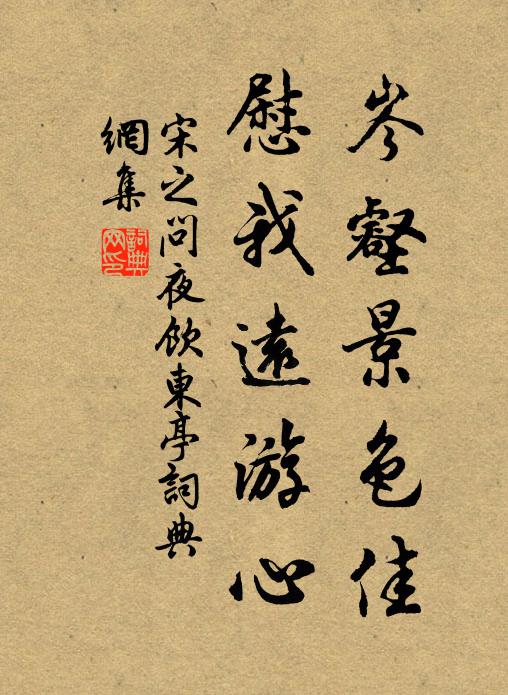 岑壑景色佳
慰我遠游心
宋之問夜飲東亭詞典
網集
詞典
网印